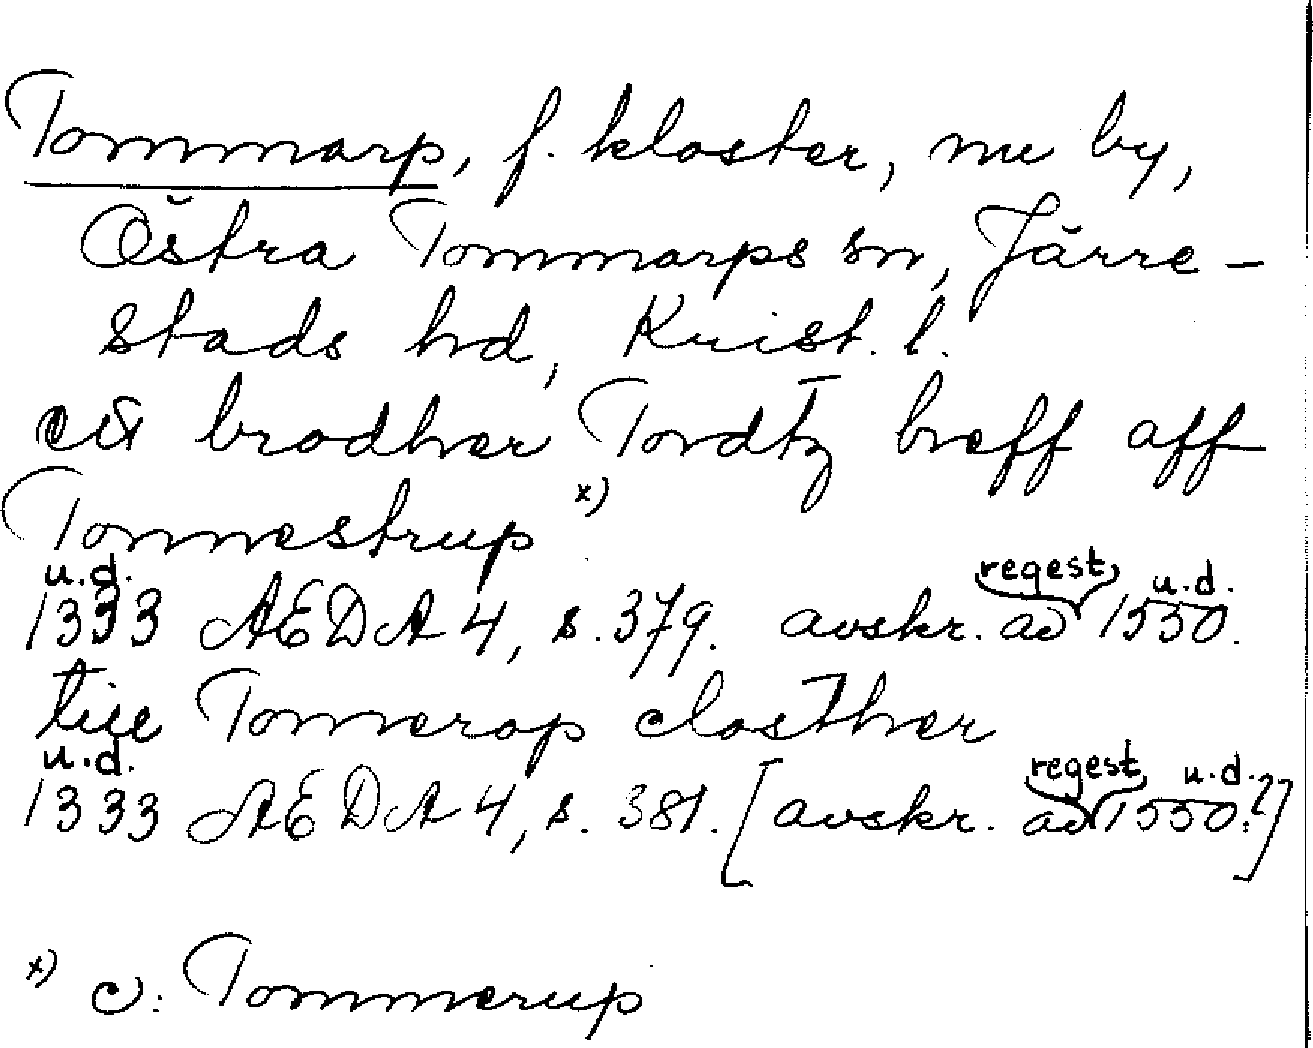 Tommarp, f. kloster, nu by,
Östra Tommarps sn, Järre-
stads hd, Krist. l.
eth brodher Tordtz breff aff
Tommestrup x)
u.d. regest u.d.
1333 AEDA 4, s. 379. avskr. ao 1550.
tiie Tommerop closther
u.d. regest u.d.
1333 AEDA 4, s. 381. [avskr. ao 1550.?]
x) ɔ: Tommerup